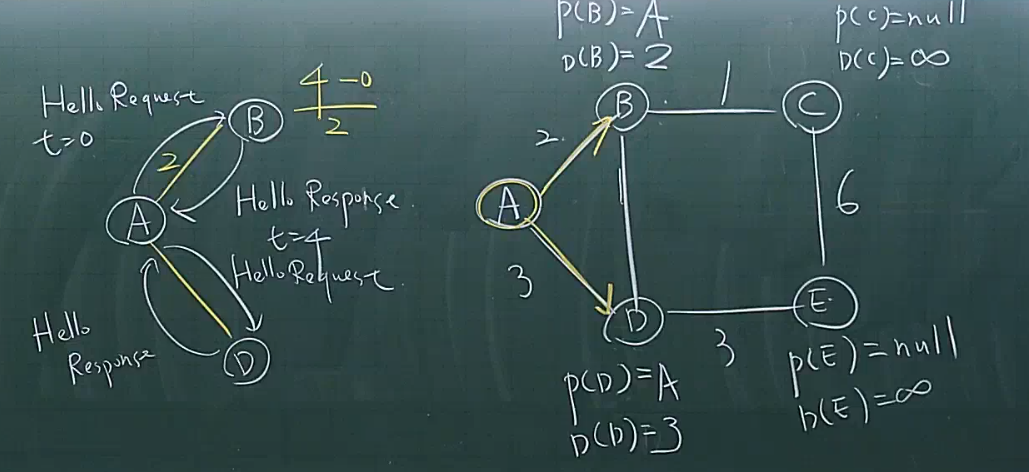 Hello Request
t=0
B
4-0
2
2
A
Hello Response.
t=4
Hello Request.
Hello
Response
D
P(B)=A
D(B)=2
P(C)=null
D(C)=∞
B
1
C
2.
A
6
3
D
3
E
P(D)=A
D(D)=3
P(E)=null
D(E)=∞